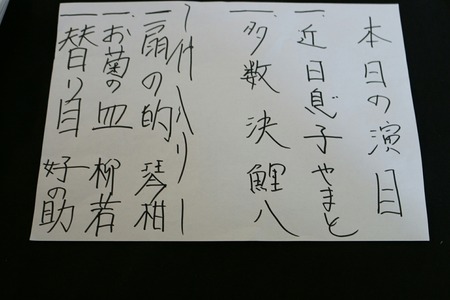 本日の演目
一、近日息子 やまと
一、多数決 鯉八
ー仲入りー
一、扇の的 琴柑
一、お菊の皿 柳若
一、替り目 好の助